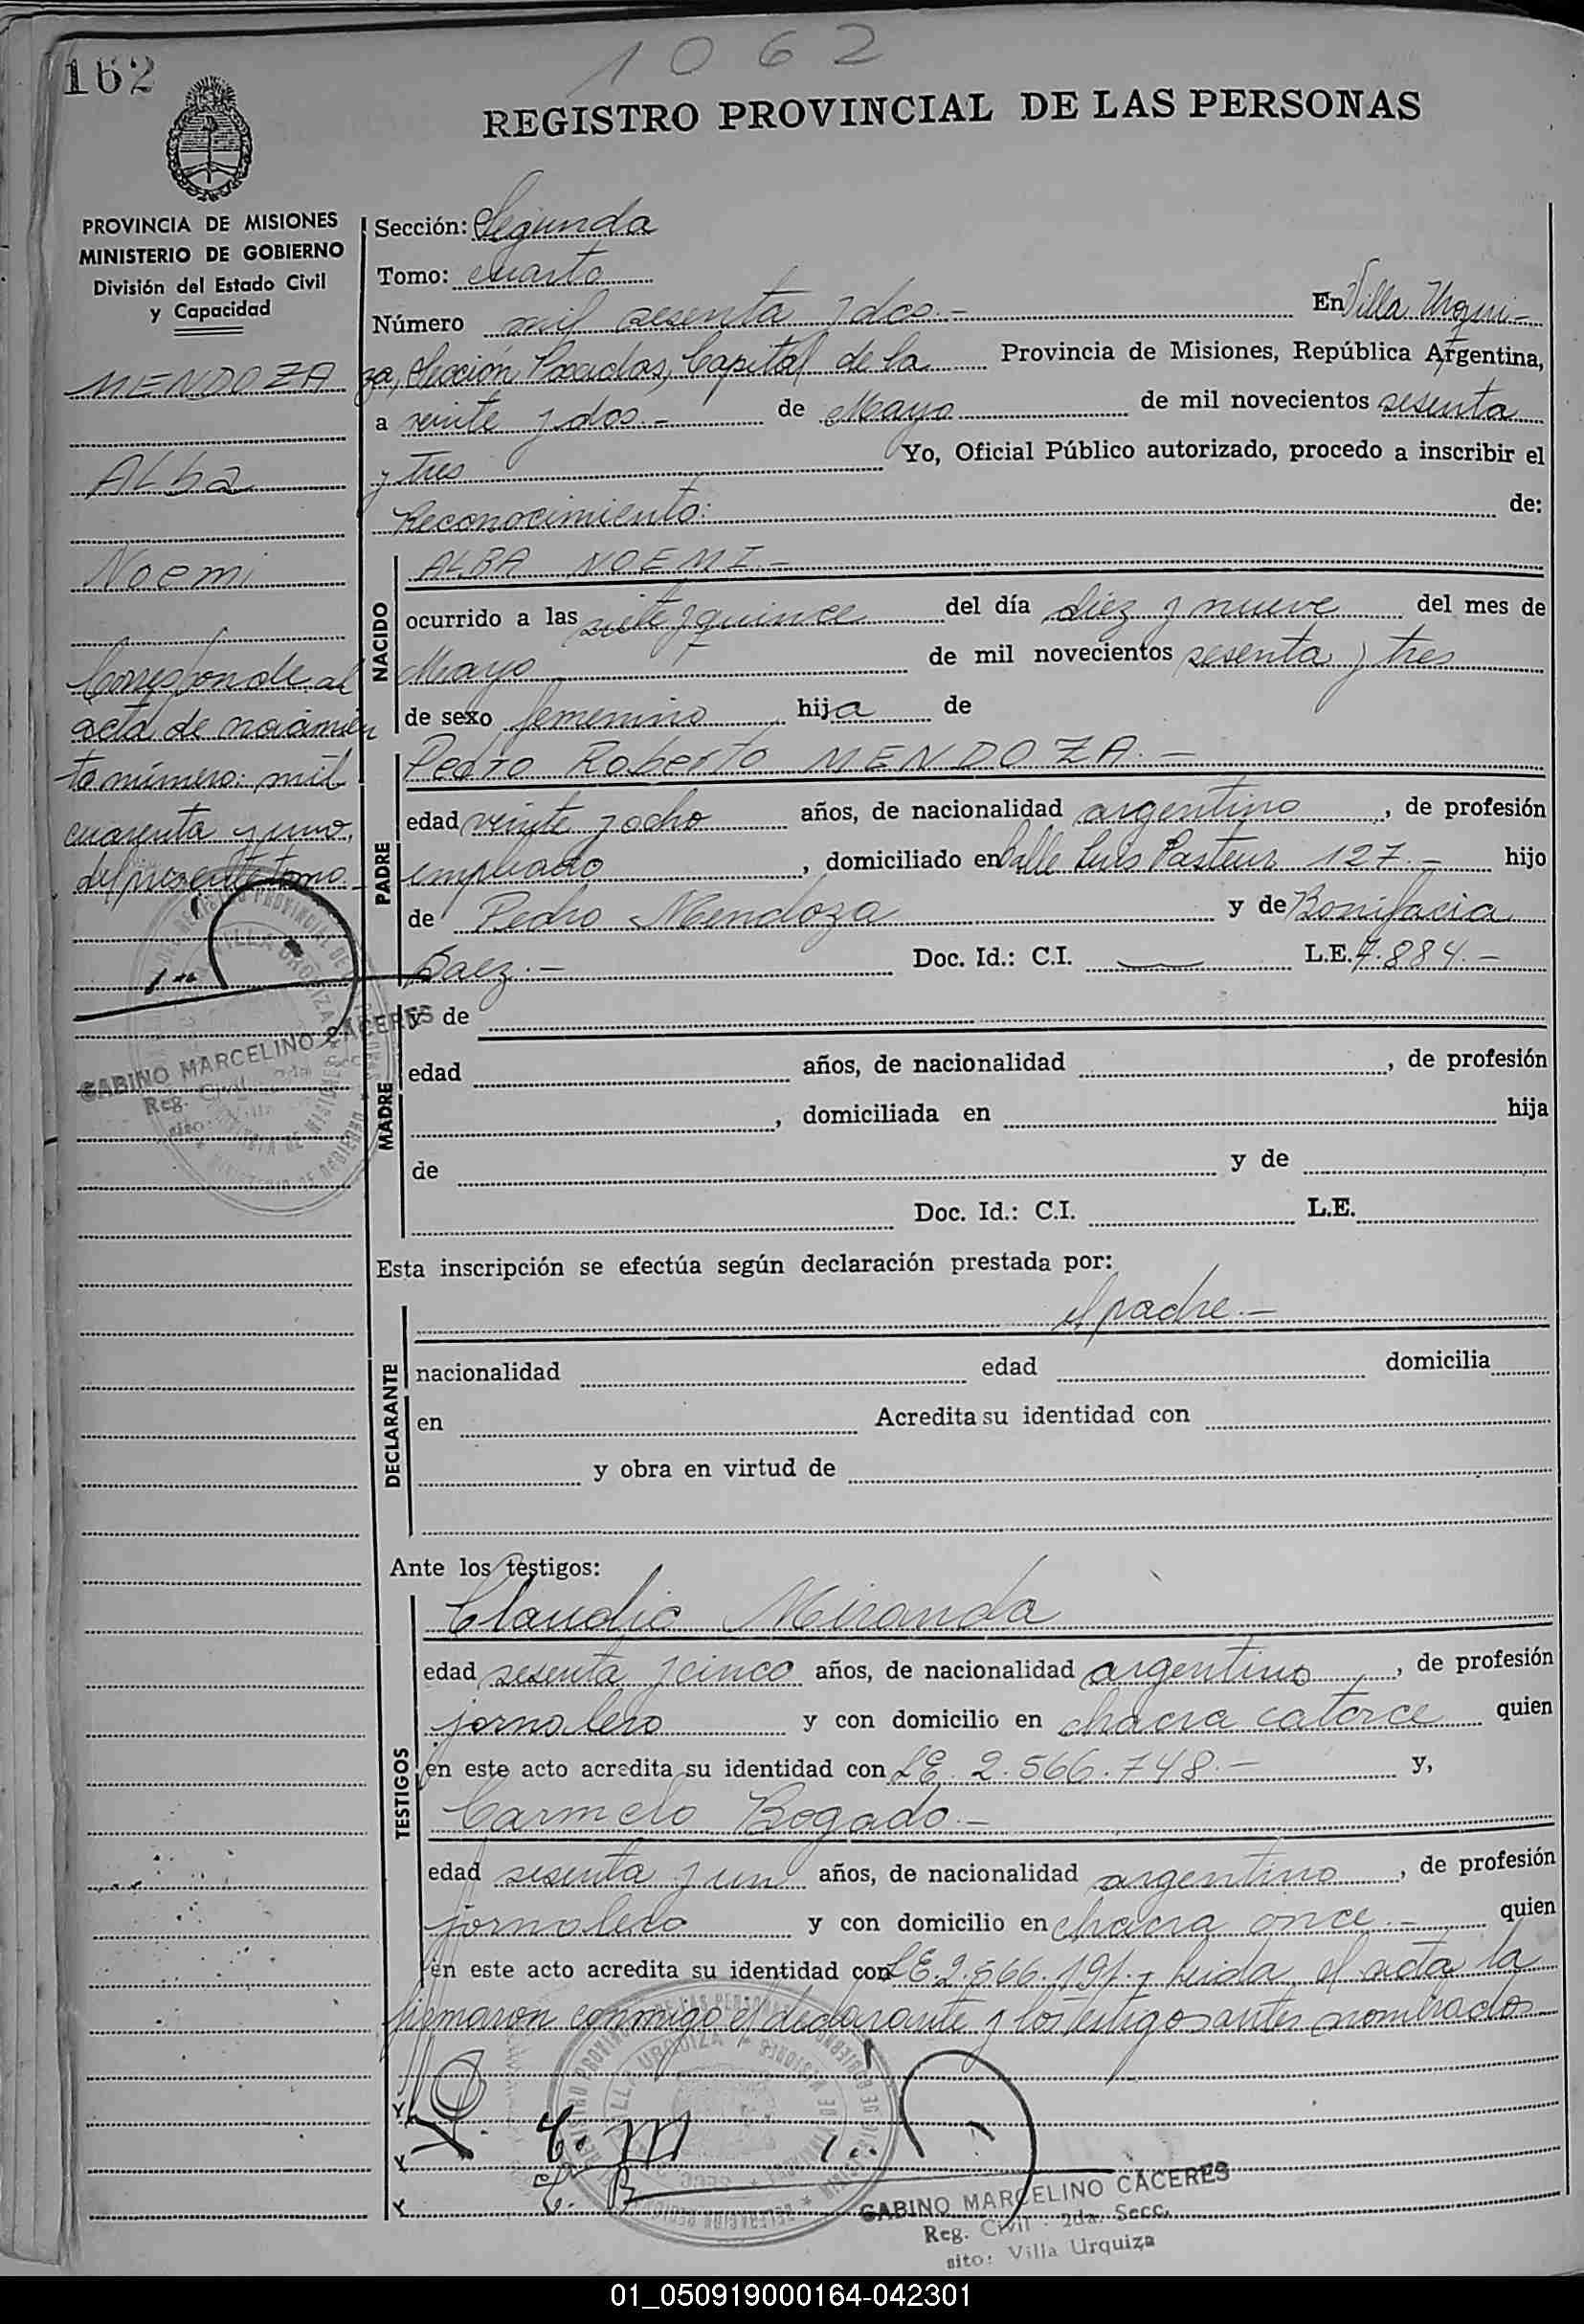 1062
162
REGISTRO PROVINCIAL DE LAS PERSONAS
PROVINCIA DE MISIONES
MINISTERIO DE GOBIERNO
División del Estado Civil
y Capacidad
MENDOZA
Alba
Noemi
Corresponde al
acta de nacimien
to número: mil
cuarenta y uno,
del presente tomo
GABINO MARCELINO CACERES
Reg. Civil 2da Secc
Sección: Segunda
Tomo: cuarto
Número mil sesenta y dos.- En Villa Urqui-
za, Sección Posadas, Capital de la Provincia de Misiones, República Argentina,
a veinte y dos.- de Mayo de mil novecientos sesenta
y tres Yo, Oficial Público autorizado, procedo a inscribir el
Reconocimiento: de:
NACIDO
ALBA NOEMI.-
ocurrido a las siete y quince del día diez y nueve del mes de
Mayo de mil novecientos sesenta y tres
de sexo femenino, hija de
PADRE
Pedro Roberto MENDOZA.-
edad veinte y ocho años, de nacionalidad argentino, de profesión
empleado, domiciliado en Calle Luis Pasteur 127.- hijo
de Pedro Mendoza y de Bonifacia
Baez.- Doc. Id.: C.I. — L.E. 7.884.-
MADRE
y de
edad años, de nacionalidad , de profesión
, domiciliada en hija
de y de
Doc. Id.: C.I. L.E.
Esta inscripción se efectúa según declaración prestada por:
DECLARANTE
el padre.-
nacionalidad edad domicilia
en Acredita su identidad con
y obra en virtud de
Ante los testigos:
TESTIGOS
Claudio Miranda
edad sesenta y cinco años, de nacionalidad argentino, de profesión
jornalero y con domicilio en chacra catorce quien
en este acto acredita su identidad con L.E. 2.566.748.- y,
Carmelo Bogado.-
edad sesenta y un años, de nacionalidad argentino, de profesión
jornalero y con domicilio en chacra once.- quien
en este acto acredita su identidad con L.E. 2.566.191.- Leida el acta la
firmaron conmigo el declarante y los testigos antes nombrados
C. M
C. B
GABINO MARCELINO CACERES
Reg. Civil - 2da. Secc.
sito: Villa Urquiza
01_050919000164-042301